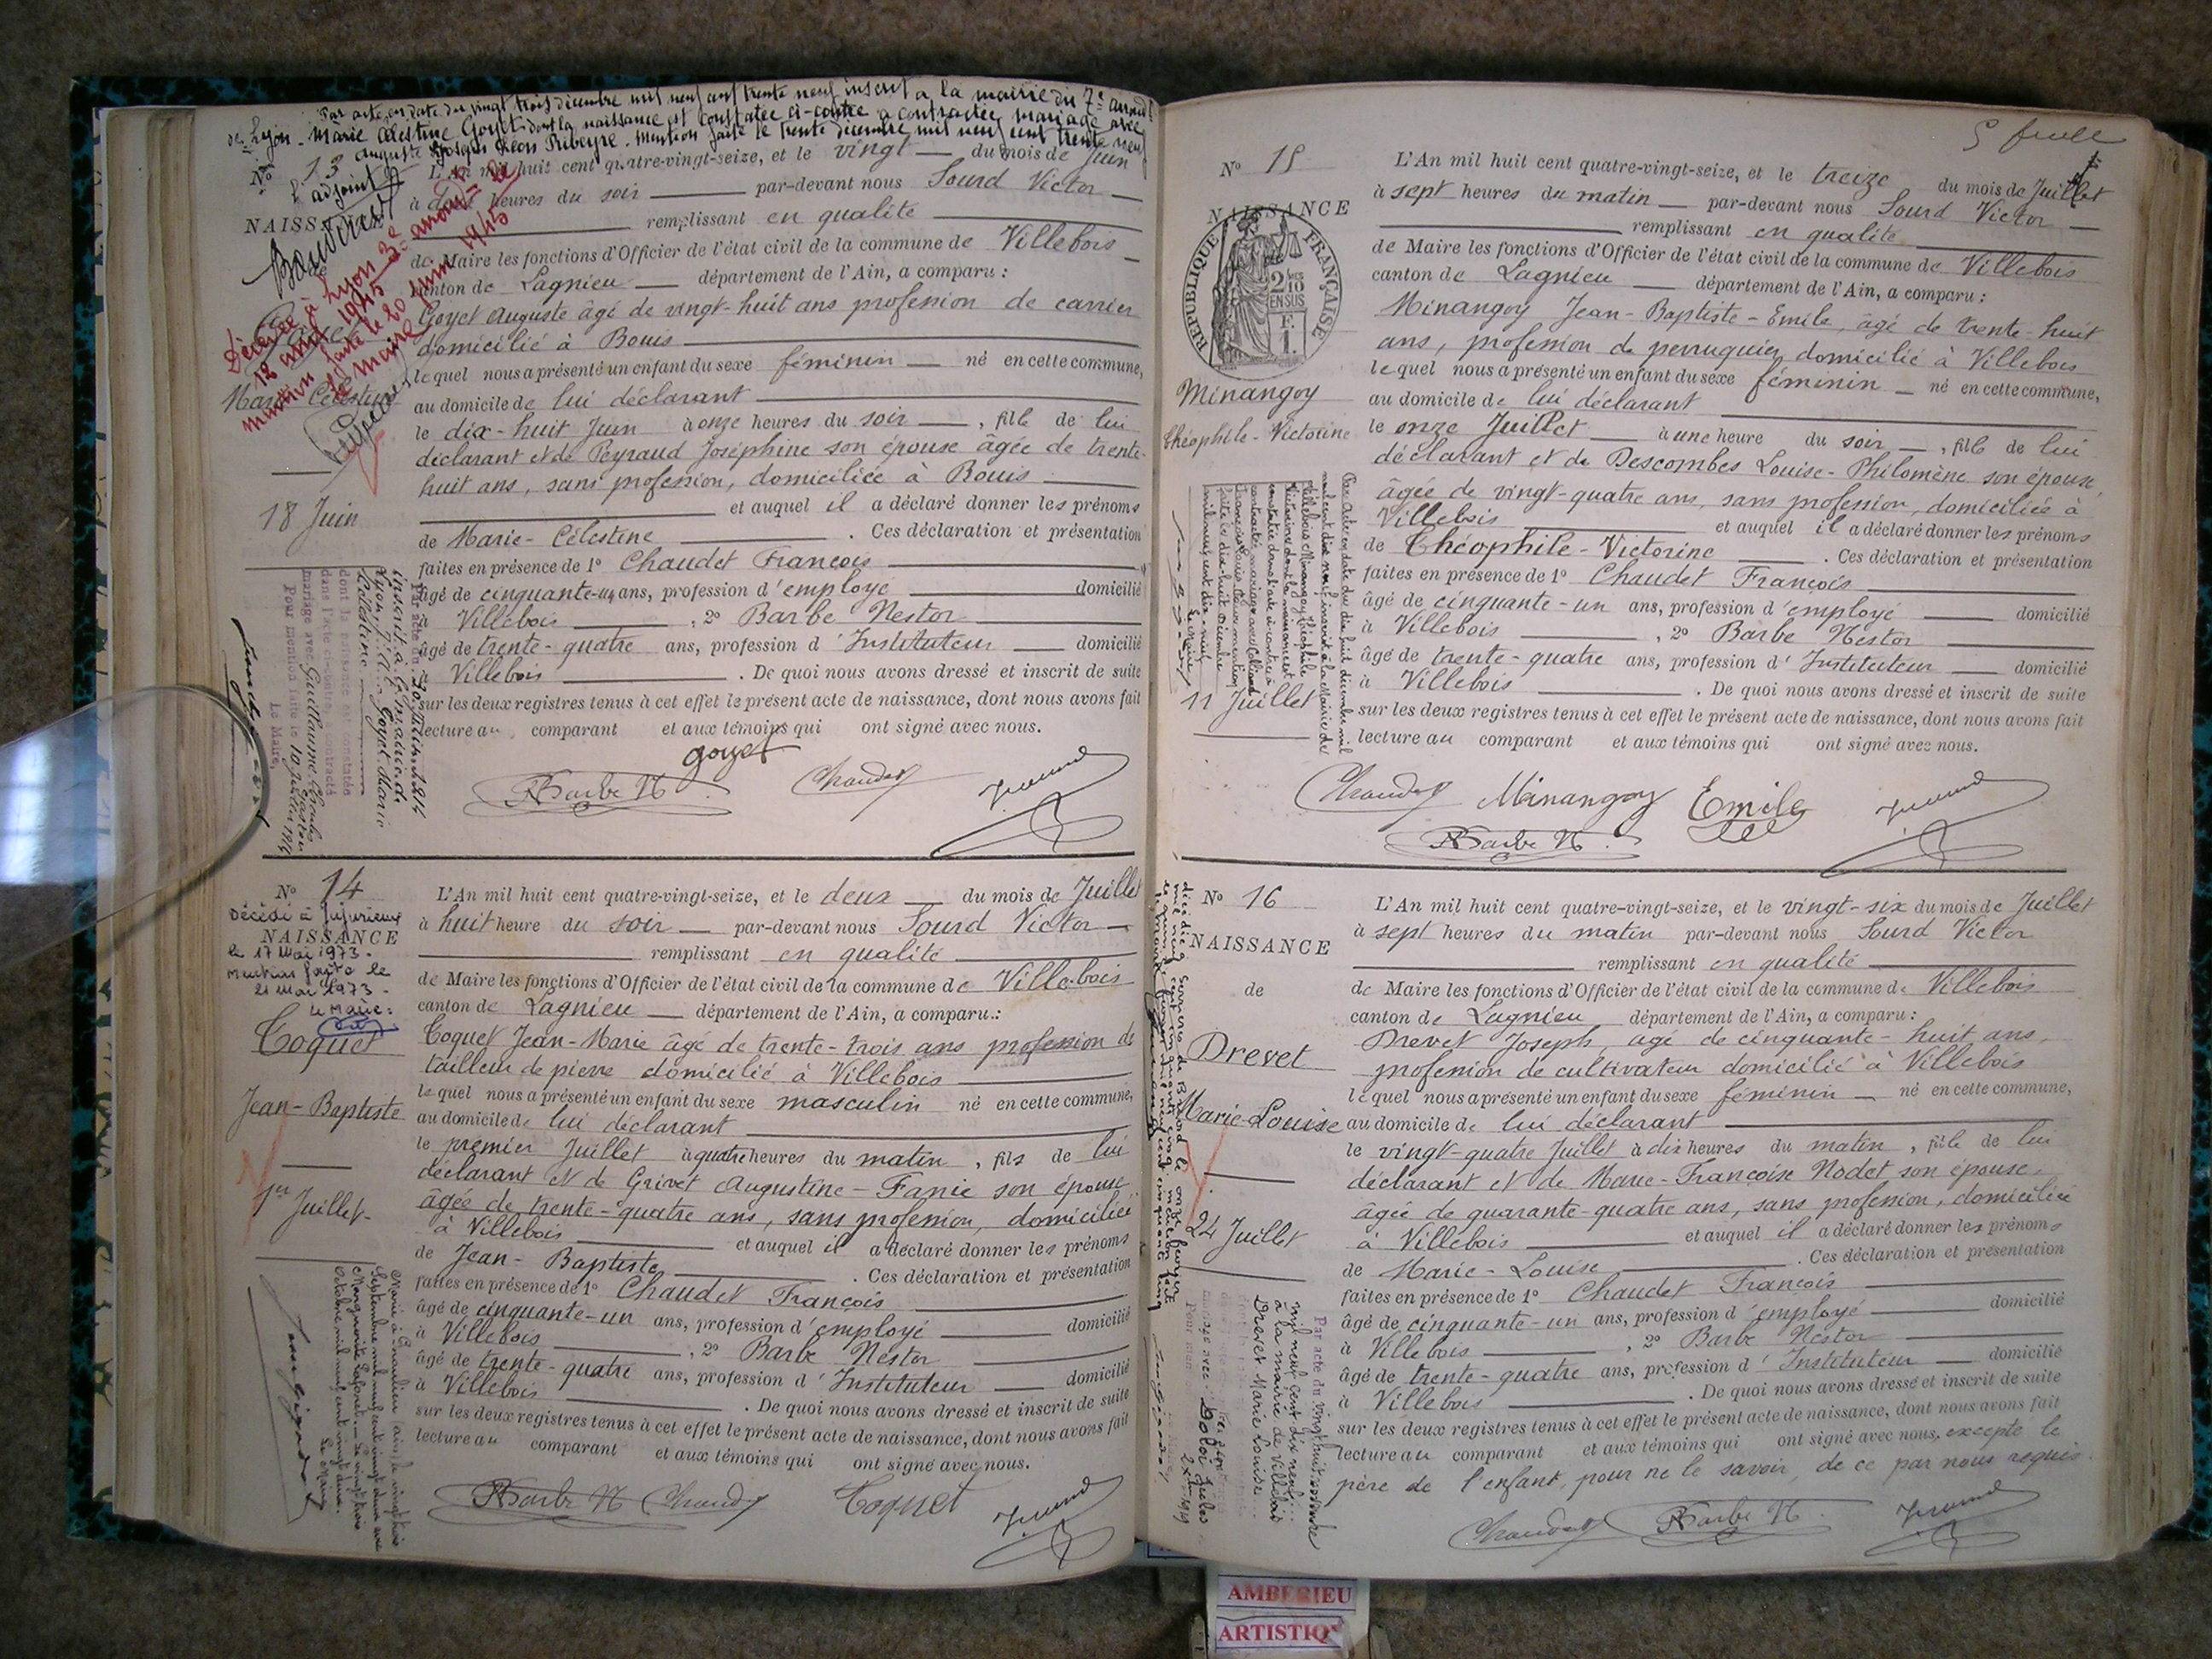 Par acte en date du vingt trois décembre mil neuf cent trente neuf inscrit à la mairie du 7e arrondt
de Lyon - Marie Célestine Goyet dont la naissance est constatée ci-contre a contracté mariage avec
Auguste Joseph Léon Ribeyre. Mention faite le trente décembre mil neuf cent trente neuf
l'adjoint
Décédée à Lyon 3e arrondt le
12 1945
Mention faite le 20 juin 1945
le maire
No 13
NAISSANCE
de
Goyet
Marie Célestine
18 Juin
L'An mil huit cent quatre-vingt-seize, et le vingt du mois de Juin
à deux heures du soir par-devant nous Sourd Victor
remplissant en qualité
de Maire les fonctions d'Officier de l'état civil de la commune de Villebois
canton de Lagnieu département de l'Ain, a comparu :
Goyet Auguste âgé de vingt-huit ans profession de carrier
domicilié à Bouis
lequel nous a présenté un enfant du sexe féminin né en cette commune,
au domicile de lui déclarant
le dix-huit Juin à onze heures du soir , fille de lui
déclarant et de Peyraud Joséphine son épouse âgée de trente-
huit ans, sans profession, domiciliée à Bouis
et auquel il a déclaré donner les prénoms
de Marie-Célestine . Ces déclaration et présentation
faites en présence de 1o Chaudet François
âgé de cinquante-un ans, profession d'employé domicilié
à Villebois , 2o Barbe Nestor
âgé de trente-quatre ans, profession d'Instituteur domicilié
à Villebois . De quoi nous avons dressé et inscrit de suite
sur les deux registres tenus à cet effet le présent acte de naissance, dont nous avons fait
lecture au comparant et aux témoins qui ont signé avec nous.
goyet
Barbe N Chaudet
Par acte du 1914
inscrit à la mairie de
Lyon, Goyet Marie
Célestine
dont la naissance est constatée
dans l'acte ci-contre, a contracté
mariage avec Guillaume
Pour mention faite le 10
Le Maire,
No 14
Décédé à Jujurieux
NAISSANCE
le 17 Mai 1973.
Mention faite le
21 Mai 1973.
Le Maire:
Coquet
Jean-Baptiste
1er Juillet
L'An mil huit cent quatre-vingt-seize, et le deux du mois de Juillet
à huit heure du soir par-devant nous Sourd Victor
remplissant en qualité
de Maire les fonctions d'Officier de l'état civil de la commune de Villebois
canton de Lagnieu département de l'Ain, a comparu :
Coquet Jean-Marie âgé de trente-trois ans profession de
tailleur de pierre domicilié à Villebois
lequel nous a présenté un enfant du sexe masculin né en cette commune,
au domicile de lui déclarant
le premier Juillet à quatre heures du matin , fils de lui
déclarant et de Grivet Augustine-Fanie son épouse
âgée de trente-quatre ans, sans profession, domiciliée
à Villebois et auquel il a déclaré donner les prénoms
de Jean-Baptiste . Ces déclaration et présentation
faites en présence de 1o Chaudet François
âgé de cinquante-un ans, profession d'employé domicilié
à Villebois , 2o Barbe Nestor
âgé de trente-quatre ans, profession d'Instituteur domicilié
à Villebois . De quoi nous avons dressé et inscrit de suite
sur les deux registres tenus à cet effet le présent acte de naissance, dont nous avons fait
lecture au comparant et aux témoins qui ont signé avec nous.
Barbe N Chaudet Coquet
Marié à (ain) le vingt trois
Septembre mil neuf cent vingt deux avec
Marguerite
Octobre mil neuf cent vingt deux.
Le Maire
No 15
NAISSANCE
RÉPUBLIQUE FRANÇAISE
2/10
EN SUS
F.
1.
Minangoy
Théophile-Victorine
11 Juillet
L'An mil huit cent quatre-vingt-seize, et le treize du mois de Juillet
à sept heures du matin par-devant nous Sourd Victor
remplissant en qualité
de Maire les fonctions d'Officier de l'état civil de la commune de Villebois
canton de Lagnieu département de l'Ain, a comparu :
Minangoy Jean-Baptiste-Emile, âgé de trente-huit
ans, profession de perruquier domicilié à Villebois
lequel nous a présenté un enfant du sexe féminin né en cette commune,
au domicile de lui déclarant
le onze Juillet à une heure du soir , fille de lui
déclarant et de Descombes Louise-Philomène son épouse,
âgée de vingt-quatre ans, sans profession, domiciliée à
Villebois et auquel il a déclaré donner les prénoms
de Théophile-Victorine . Ces déclaration et présentation
faites en présence de 1o Chaudet François
âgé de cinquante-un ans, profession d'employé domicilié
à Villebois , 2o Barbe Nestor
âgé de trente-quatre ans, profession d'Instituteur domicilié
à Villebois . De quoi nous avons dressé et inscrit de suite
sur les deux registres tenus à cet effet le présent acte de naissance, dont nous avons fait
lecture au comparant et aux témoins qui ont signé avec nous.
Chaudet Minangoy Emile
Barbe N.
Par acte en date du dix huit décembre mil
neuf cent dix neuf inscrit à la Mairie de
Villebois Minangoy Théophile
Victorine dont la naissance est
constatée dans l'acte ci-contre a
contracté mariage avec
faite le dix-huit Décembre
mil neuf cent dix-neuf
Le Maire
No 16
NAISSANCE
de
Drevet
Marie-Louise
24 Juillet
L'An mil huit cent quatre-vingt-seize, et le vingt-six du mois de Juillet
à sept heures du matin par-devant nous Sourd Victor
remplissant en qualité
de Maire les fonctions d'Officier de l'état civil de la commune de Villebois
canton de Lagnieu département de l'Ain, a comparu :
Drevet Joseph, âgé de cinquante-huit ans,
profession de cultivateur domicilié à Villebois
lequel nous a présenté un enfant du sexe féminin né en cette commune,
au domicile de lui déclarant
le vingt-quatre Juillet à dix heures du matin , fille de lui
déclarant et de Marie-Françoise Nodet son épouse,
âgée de quarante-quatre ans, sans profession, domiciliée
à Villebois et auquel il a déclaré donner les prénoms
de Marie-Louise . Ces déclaration et présentation
faites en présence de 1o Chaudet François
âgé de cinquante-un ans, profession d'employé domicilié
à Villebois , 2o Barbe Nestor
âgé de trente-quatre ans, profession d'Instituteur domicilié
à Villebois . De quoi nous avons dressé et inscrit de suite
sur les deux registres tenus à cet effet le présent acte de naissance, dont nous avons fait
lecture au comparant et aux témoins qui ont signé avec nous, excepté le
père de l'enfant, pour ne le savoir, de ce par nous requis.
Chaudet Barbe N.
Par acte du vingt huit
mil neuf cent dix neuf
à la mairie de Villebois
Drevet Marie Louise
mariage avec Jules
AMBERIEU
ARTISTIQ